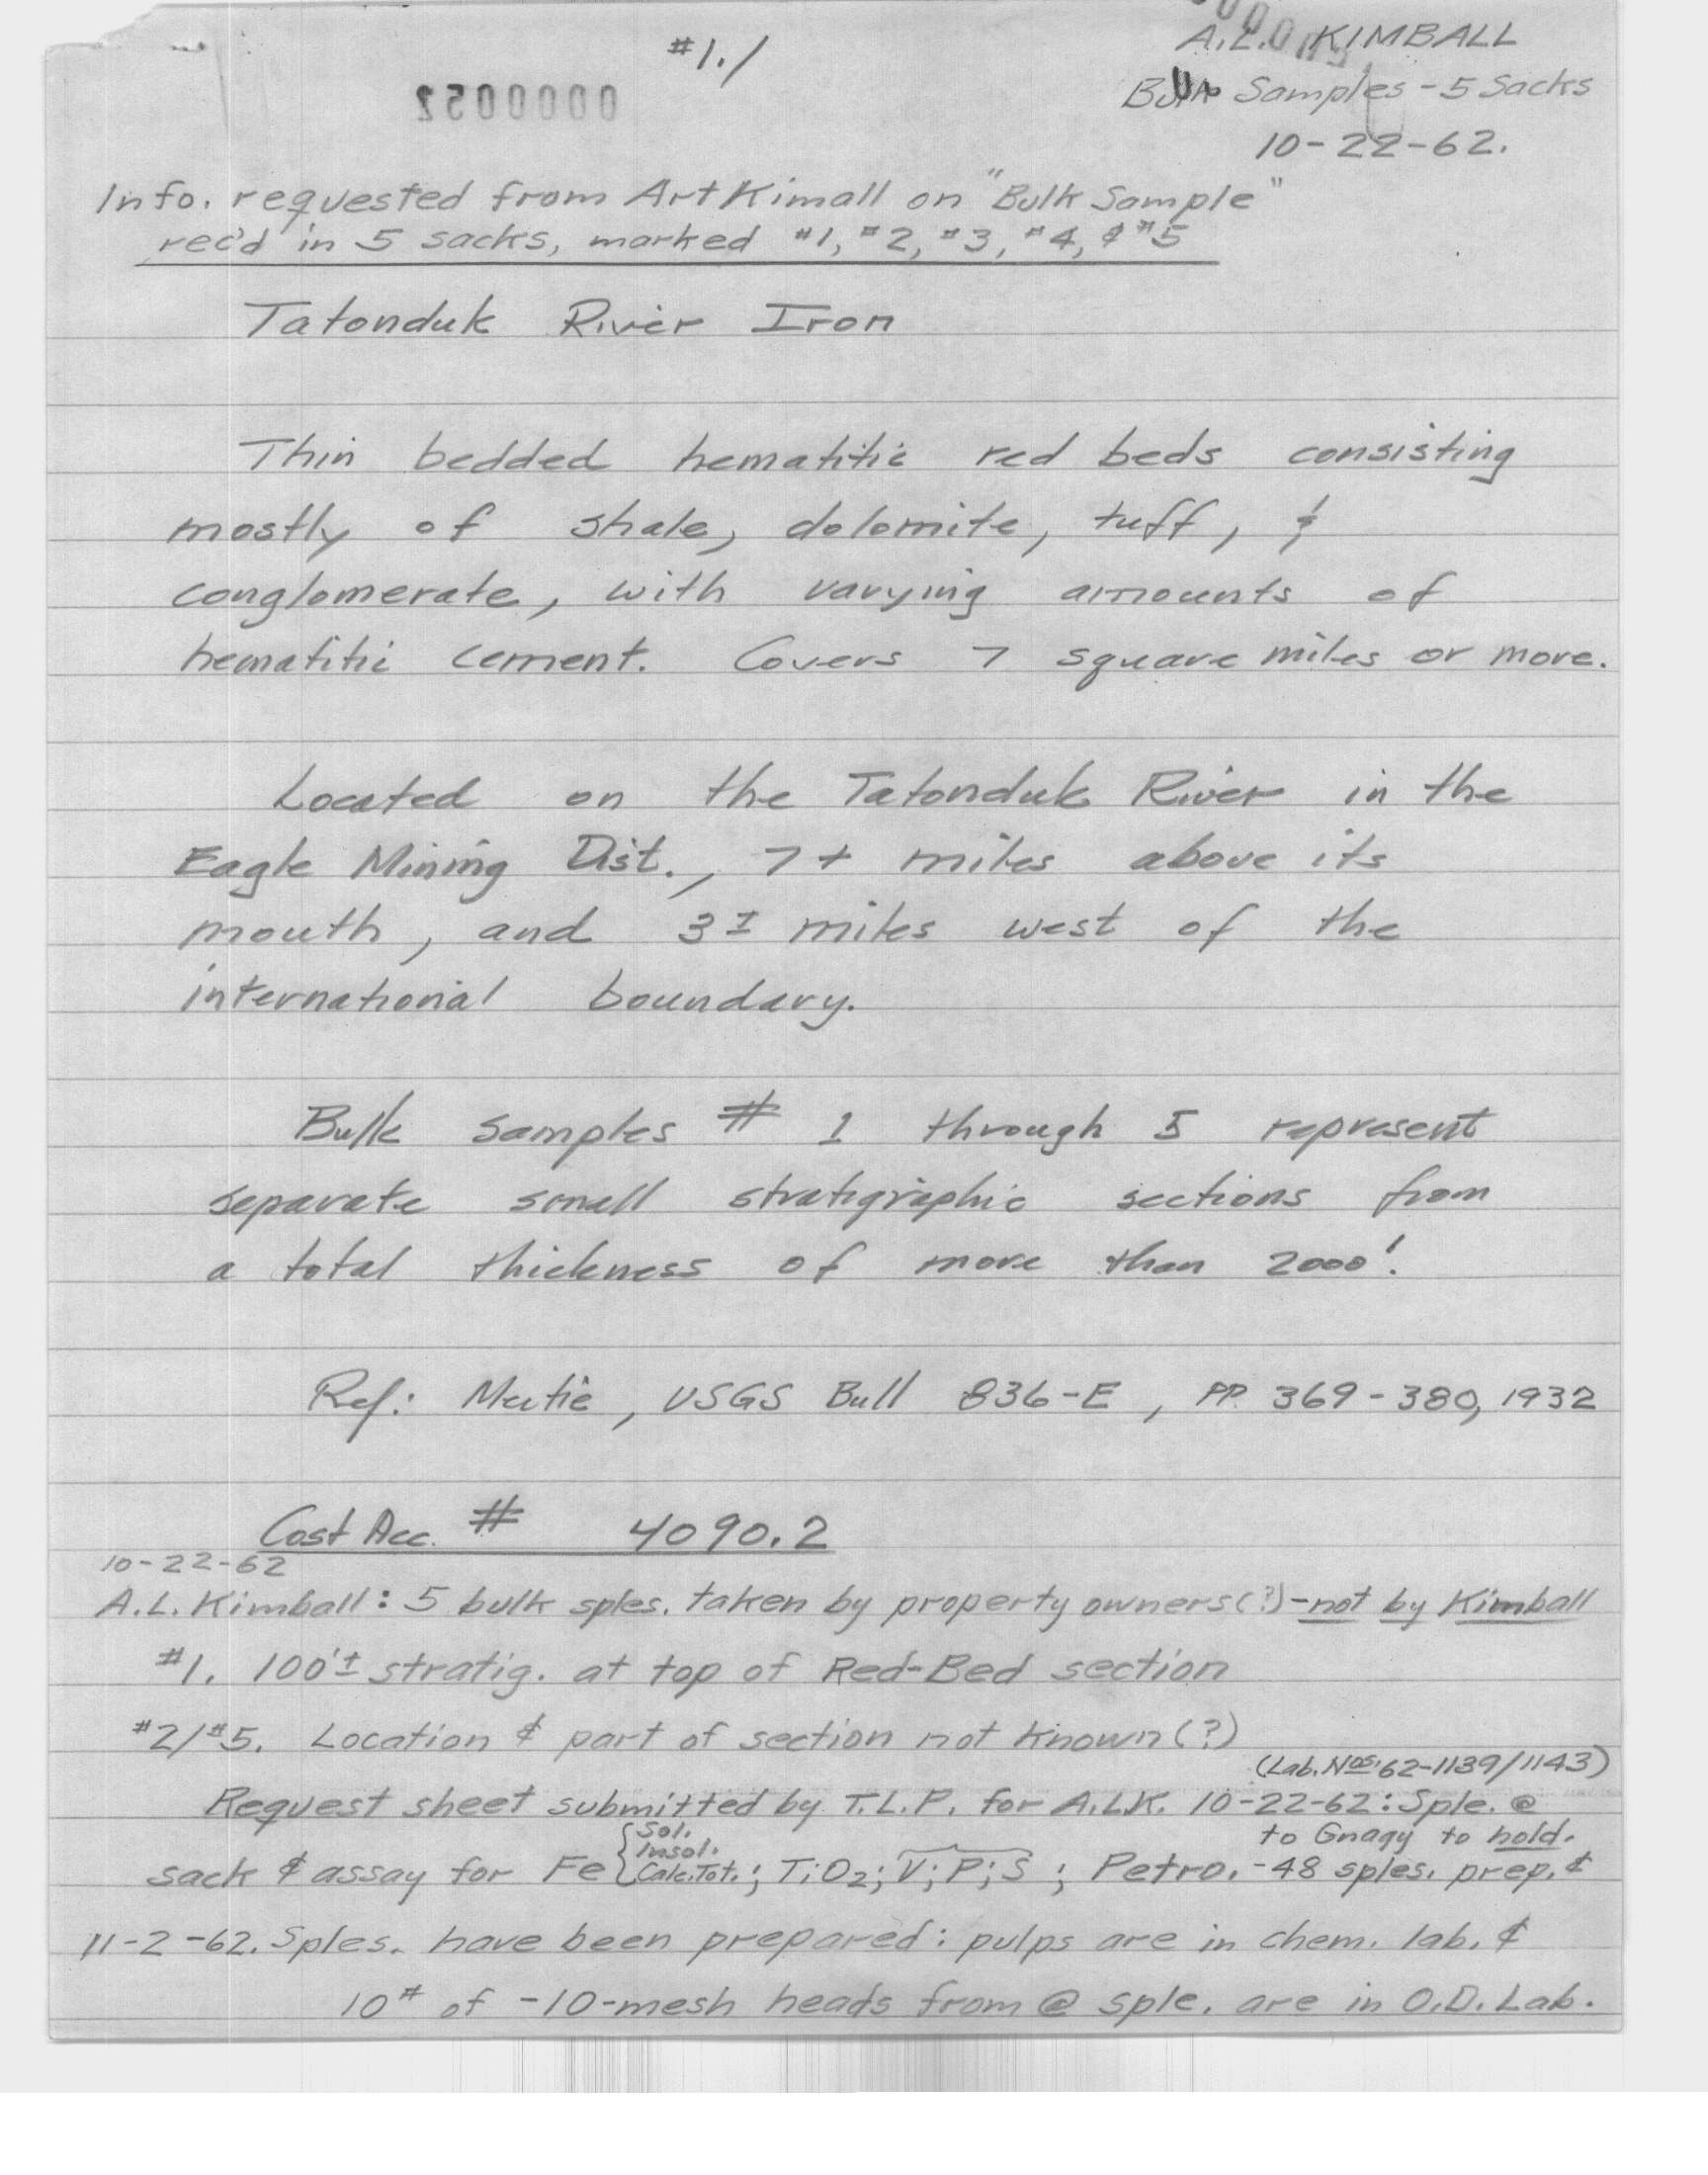 #1./
A.L. KIMBALL
Bulk Samples - 5 Sacks
0000052
10-22-62.
Info. requested from Art Kimall on "Bulk Sample"
rec'd in 5 sacks, marked #1, #2, #3, #4, & #5
Tatonduk River Iron
Thin bedded hematitic red beds consisting
mostly of shale, dolomite, tuff, &
conglomerate, with varying amounts of
hematitic cement. Covers 7 square miles or more.
Located on the Tatonduk River in the
Eagle Mining Dist., 7+ miles above its
mouth, and 3± miles west of the
international boundary.
Bulk samples # 1 through 5 represent
separate small stratigraphic sections from
a total thickness of more than 2000'.
Ref: Mertie, USGS Bull 836-E, PP. 369-380, 1932
Cost Acc. # 4090.2
10-22-62
A.L. Kimball: 5 bulk sples. taken by property owners(?)-not by Kimball
#1. 100'± stratig. at top of Red-Bed section
#2/#5. Location & part of section not known(?)
(Lab. Nos. 62-1139/1143)
Request sheet submitted by T.L.P. for A.L.K. 10-22-62: Sple. @
to Gnagy to hold.
sack & assay for Fe {Sol. Insol. Calc. Tot.; TiO2; V; P; S; Petro. -48 sples. prep. &
11-2-62. Sples. have been prepared: pulps are in chem. lab. &
10# of -10-mesh heads from @ sple. are in O.D. Lab.